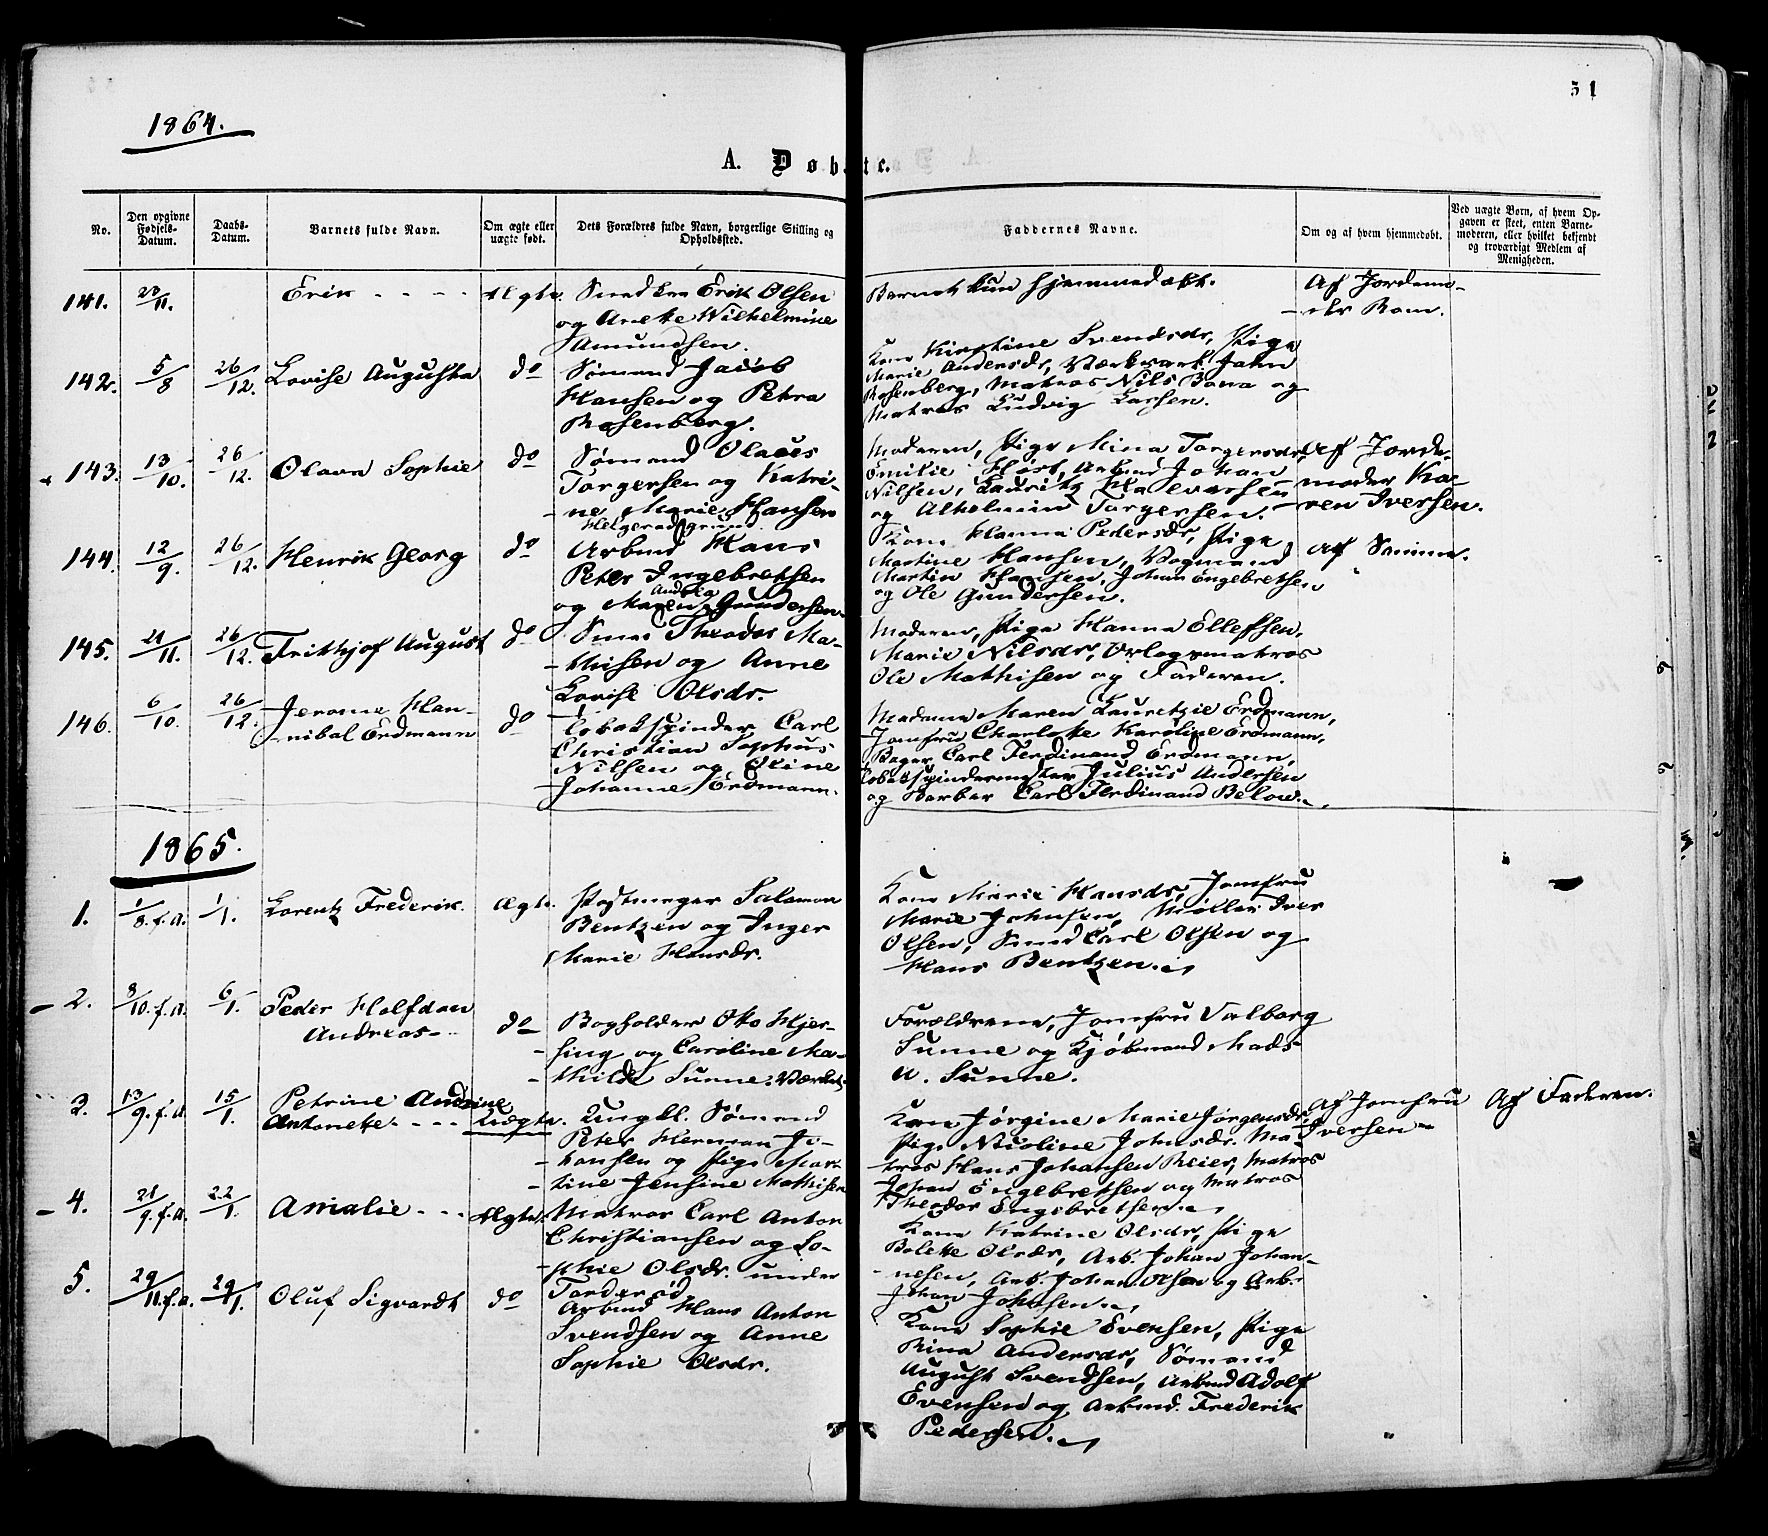 1864.
31
A. Døbte.
No.
Den opgivne Fødsels-Datum.
Daabs-Datum.
Barnets fulde Navn.
Om ægte eller uægte født.
Dets Forældres fulde Navn, borgerlige Stilling og Opholdssted.
Faddernes Navne.
Om og af hvem hjemmedøbt.
Ved uægte Børn, af hvem Opgaven er skeet, enten Barnemoderen, eller hvilket bekjendt og troværdigt Medlem af Menigheden.
141.
11.
Erik
Ægte.
Erik Olsen
og Anette Wilhelmine
Amundsen.
Barnet kun hjemmedøbt.
Af Jordem-
142.
5/8
26/12.
Lovise Augusta
do
Sømand Jacob
Hansen og Petra
Rosenberg.
Kone Kirstine Svendsdr, Pige
Marie Andersdr, Værksark. John
Rosenberg, Matros Nils Bona og
Matros Ludvig Larsen.
143.
13/10.
26/12.
Olava Sophie
do
Sømand Olaves
Torgersen og Katri-
ne Marie Hansen
Moderen, Pige Mina Torgersdr,
Emilie Høst, Arbmd Johan
Nilsen, Lauritz Halvorsen
og Alhelmin Torgersen.
Af Jorde-
moder Ka-
ren Iversen.
144.
12/9.
26/12.
Henrik Georg
do
Arbmd Hans
Peter Ingebretsen
og Maren Andrea Gundersen.
Kone Hanna Pedersdr, Pige
Martine Hansen, Vognmand
Martin Hansen, Johan Engebretsen
og Ole Gundersen.
Af Samme.
145.
21/11.
26/12.
Frithjof August
do
Smed Theodor Ma-
thisen og Anne
Lovise Olsdr.
Moderen, Pige Hanna Ellefsen,
Marie Nilsdr, Orlogsmatros
Ole Mathisen og Faderen.
146.
6/10.
26/12.
Jerome Han-
nibal Erdmann
do
Tobakspinder Carl
Christian Sophus
Nilsen og Oline
Johanne Erdmann.
Madame Maren Lauretzie Erdmann,
Jomfru Charlotte Karoline Erdmann,
Bager Carl Ferdinand Erdmann,
Tobakspindermester Julius Andersen
og Barber Carl Ferdinand Below.
1865.
1.
1/8.f.A.
1/1.
Lorentz Frederik.
Ægte.
Pottemager Salamon
Bentzen og Inger
Marie Hansdr.
Kone Marie Hansdr, Jomfru
Marie Johnsen, Møller Iver
Olsen, Smed Carl Olsen og
Hans Bentzen.
2.
8/10.f.A.
6/1.
Peder Halfdan
Andreas
do
Bogholder Otto Hjer-
sing og Caroline Ma-
thilde Sunne.
Forældrene, Jomfru Valborg
Sunne og Kjøbmand Mads
Sunne.
3.
13/9.f.A.
15/1.
Petrine Andrine
Antonette
Uægte.
Ungkl. Sømand
Peter Herman Jo-
hansen og Pige Mar-
tine Jensine Mathisen
Kone Jørgine Marie Jørgensdr,
Pige Nicoline Johnsdr. Ma-
tros Hans Johansen Reier, Matros
Johan Engebretsen og Matros
Theodor Engebretsen.
Af Jomfru
Iversen
Af Faderen.
4.
21/9.f.A.
22/1.
Amalie
Ægte.
Matros Carl Anton
Christiansen og So-
phie Olsdr. under
Torderød.
Kone Katrine Olsdr, Pige
Bolette Olsdr, Arb. Johan Johan-
nesen, Arb. Johan Olsen og Arb.
Johan Johnsen.
5.
29/11.f.A.
29/1.
Oluf Sigvardt
do
Arbmd Hans Anton
Svendsen og Anne
Sophie Olsdr.
Kone Sophie Evensen, Pige
Rina Andersdr, Sømand
August Svendsen, Arbmd Adolf
Evensen og Arbmd. Frederik
Pedersen.